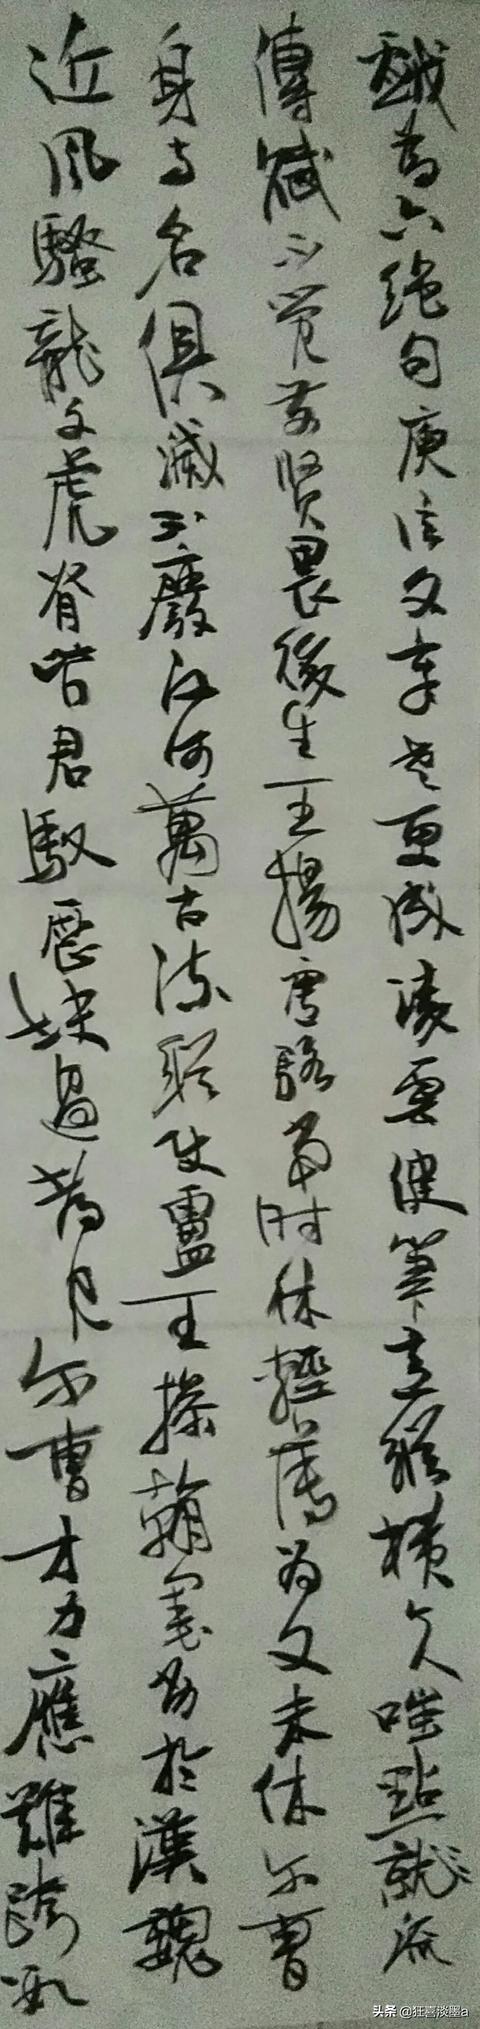 戲為六绝句庾信文章老更成凌雲健筆意縱横今人嗤點就流
傳賦不覺前贤畏後生王揚盧駱當时体輕薄為文未休尔曹
身与名俱滅不廢江河萬古流縱使盧王操翰墨劣於漢魏
近風騷龍文虎脊皆君馭歷块過都見尔曹才力應難跨數
头条 @狂喜淡墨a